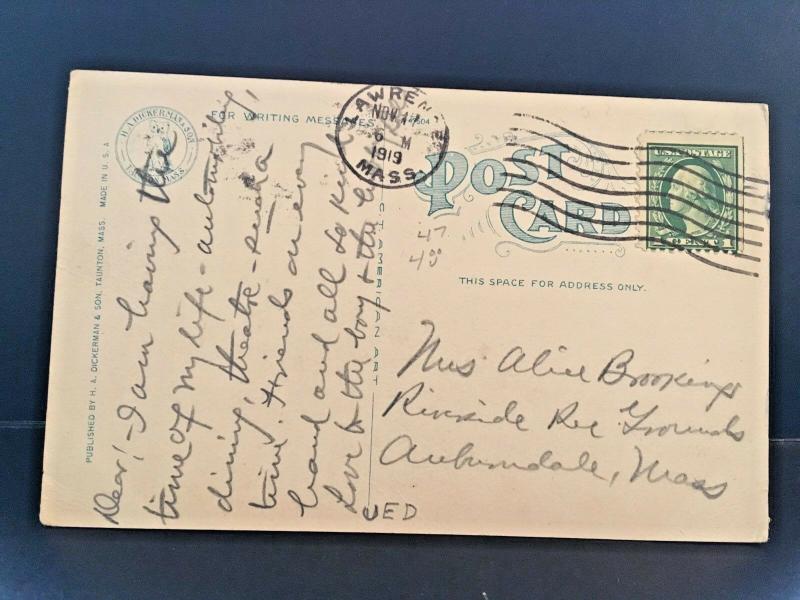 Dear! - I am having the
time of my life - automobiling,
dining, theatre -
time. Friends on every
hand and all so kind
Love to the boy & the
FOR WRITING MESSAGES
NOV 17
6 M
1919
MASS.
POST
CARD
U.S. POSTAGE
1 CENT 1
47
48
THIS SPACE FOR ADDRESS ONLY.
Mrs Alice Brookings
Riverside Rec Grounds
Auburndale, Mass
UED
C.T. AMERICAN ART
H.A. DICKERMAN & SON
TAUNTON, MASS
PUBLISHED BY H. A. DICKERMAN & SON, TAUNTON, MASS. MADE IN U. S. A